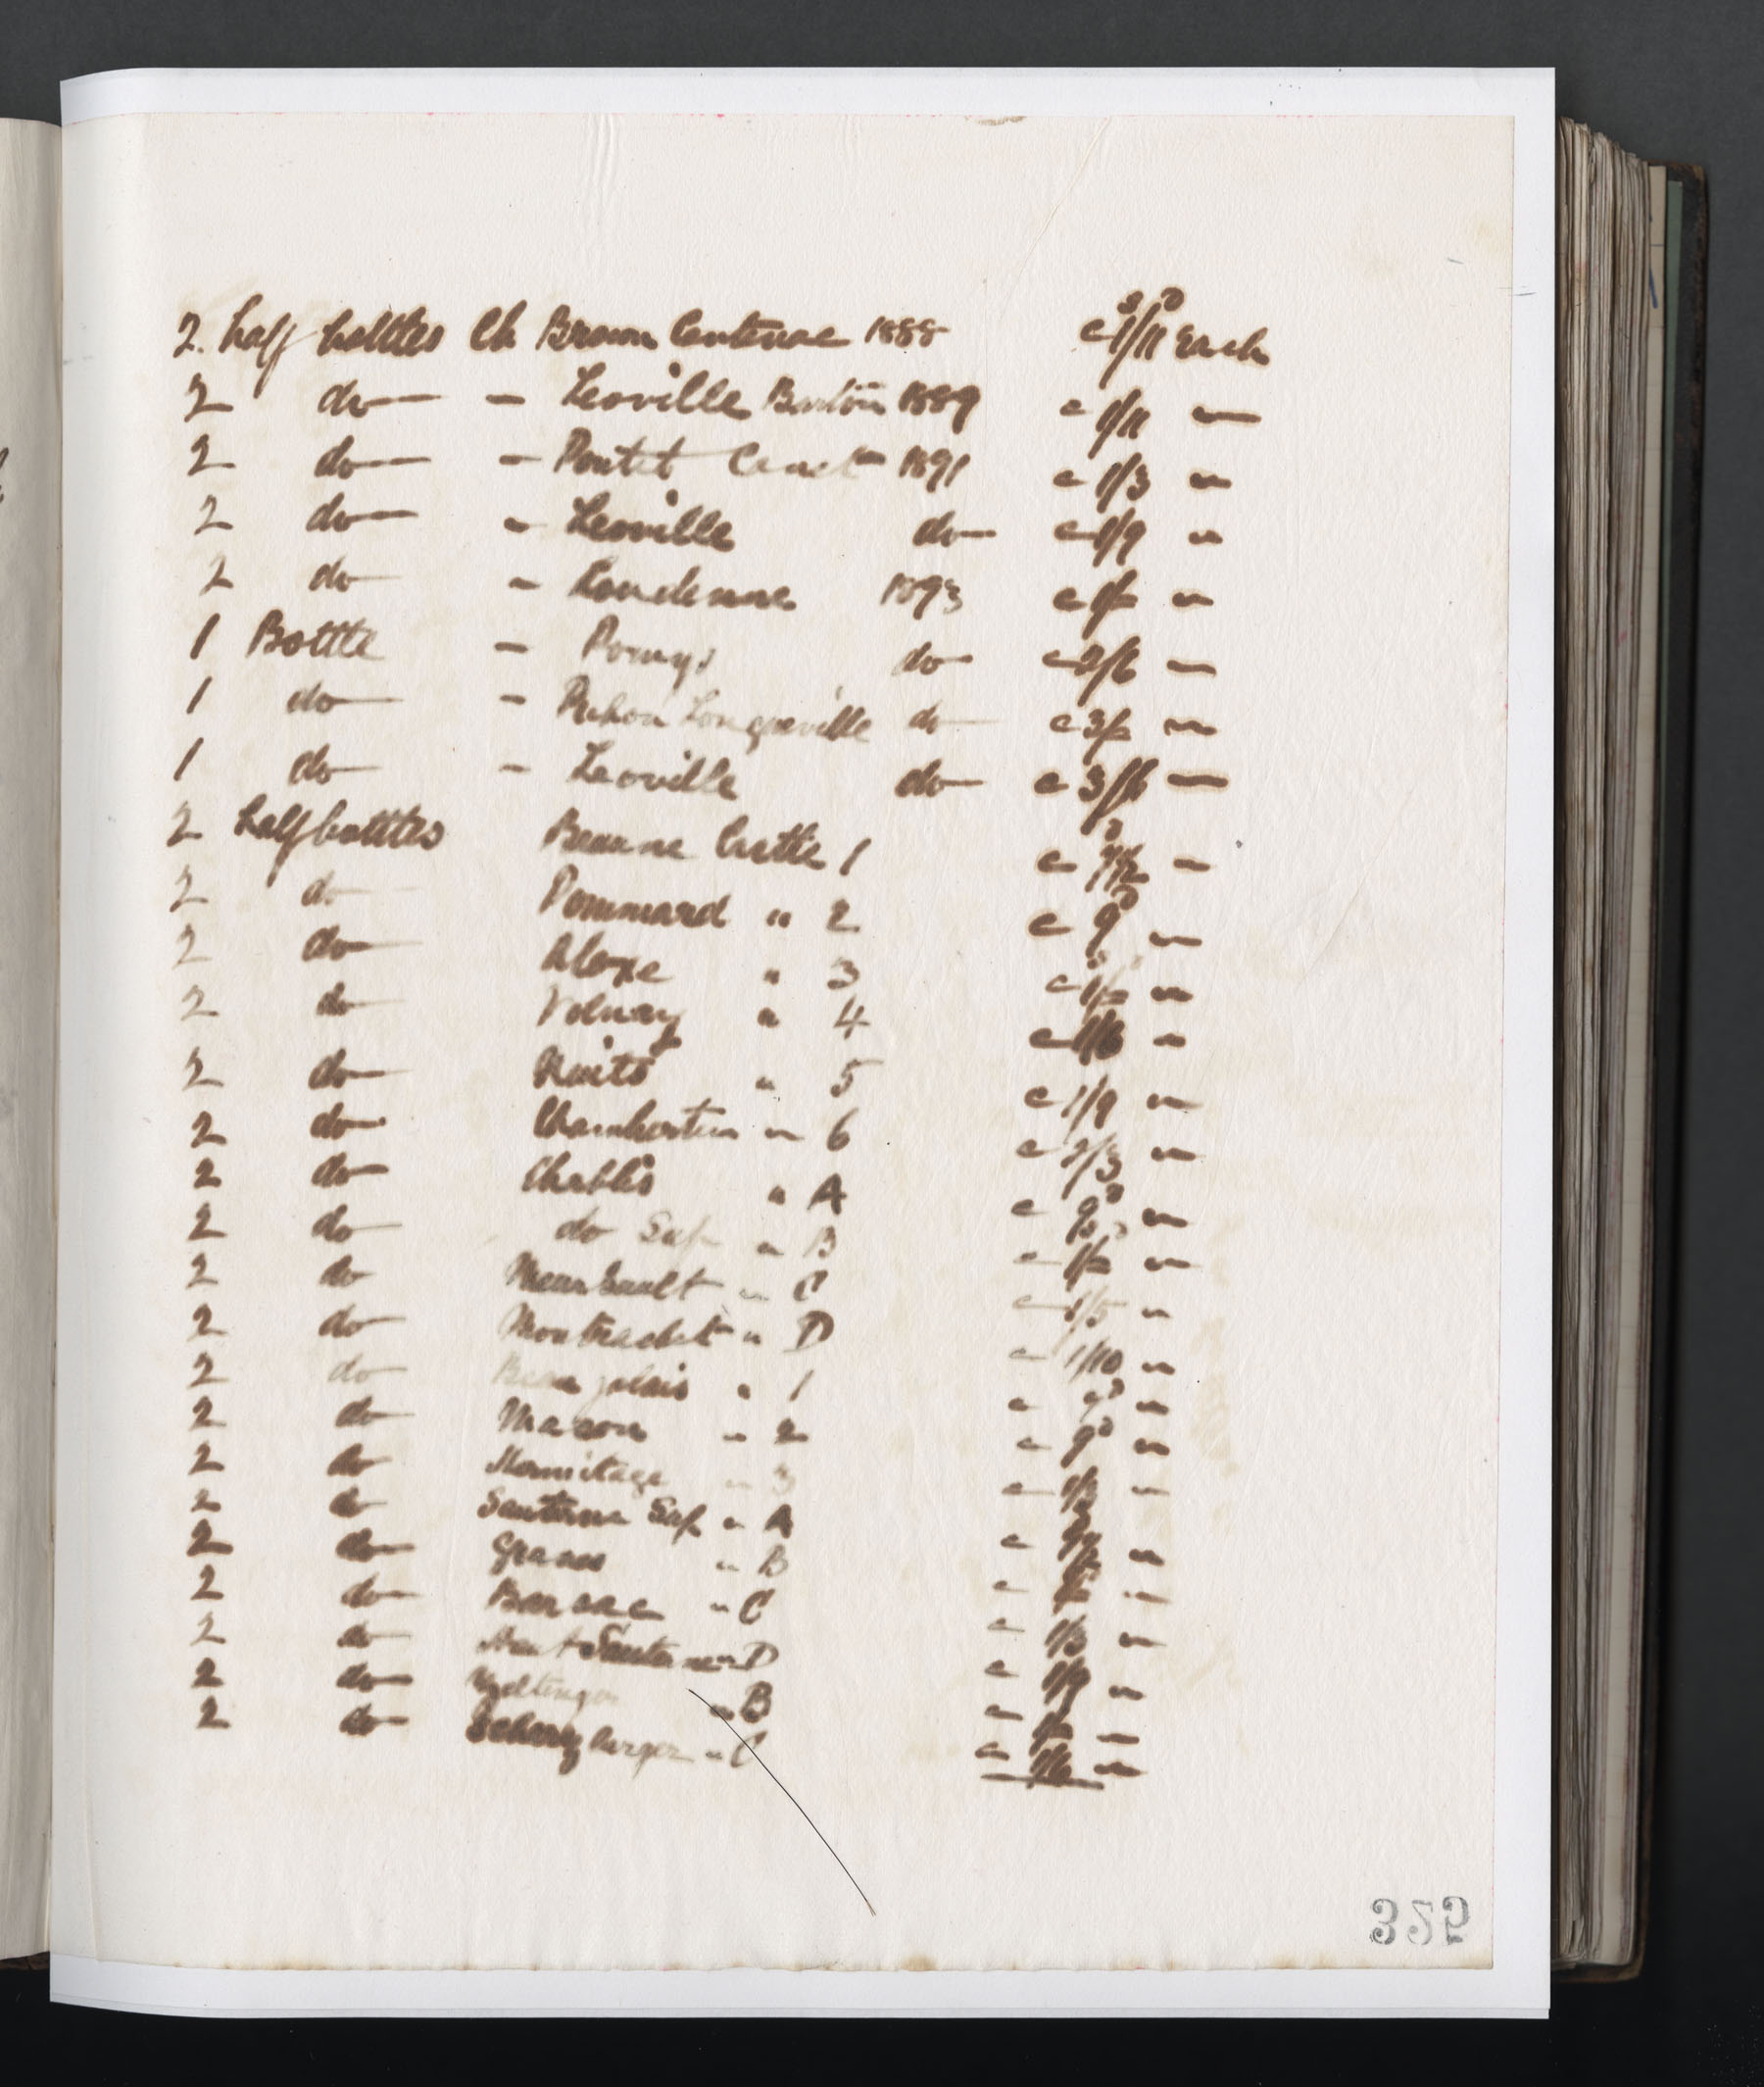 2. half bottles Ch Brown Cantenac 1888 @ 1/11 Each
2 do - Leoville Barton 1889 @ 1/11 "
2 do - Pontet Canet 1891 @ 1/3 "
2 do " Leoville do @ 1/9 "
2 do " Loudenne 1893 @ 1/= "
1 Bottle - Pomys do @ 2/6 "
1 do - Pichon Longueville do @ 3/= "
1 do - Leoville do @ 3/6 "
2 half bottles Beaune Castle 1 @ "
2 do Pommard " 2 @ 9D "
2 do Aloxe " 3 @ 1/= "
2 do Volnay " 4 @ 1/6 "
2 do Nuits " 5 @ 1/9 "
2 do Chambertin " 6 @ 2/3 "
2 do Chablis " A @ 9D "
2 do do Sup " B @ 1/= "
2 do Meursault " C @ 1/5 "
2 do Montrachet " D @ 1/10 "
2 do Beaujolais " 1 @ "
2 do Macon " 2 @ 9D "
2 do Hermitage " 3 @ "
2 do Sauterne Sup " A @ "
2 do Graves " B @ "
2 do Barsac " C @ 1/3 "
2 do Haut Sauterne " D @ 1/9 "
2 do " B @ "
2 do Scharzberger " C @ 1/6 "
352